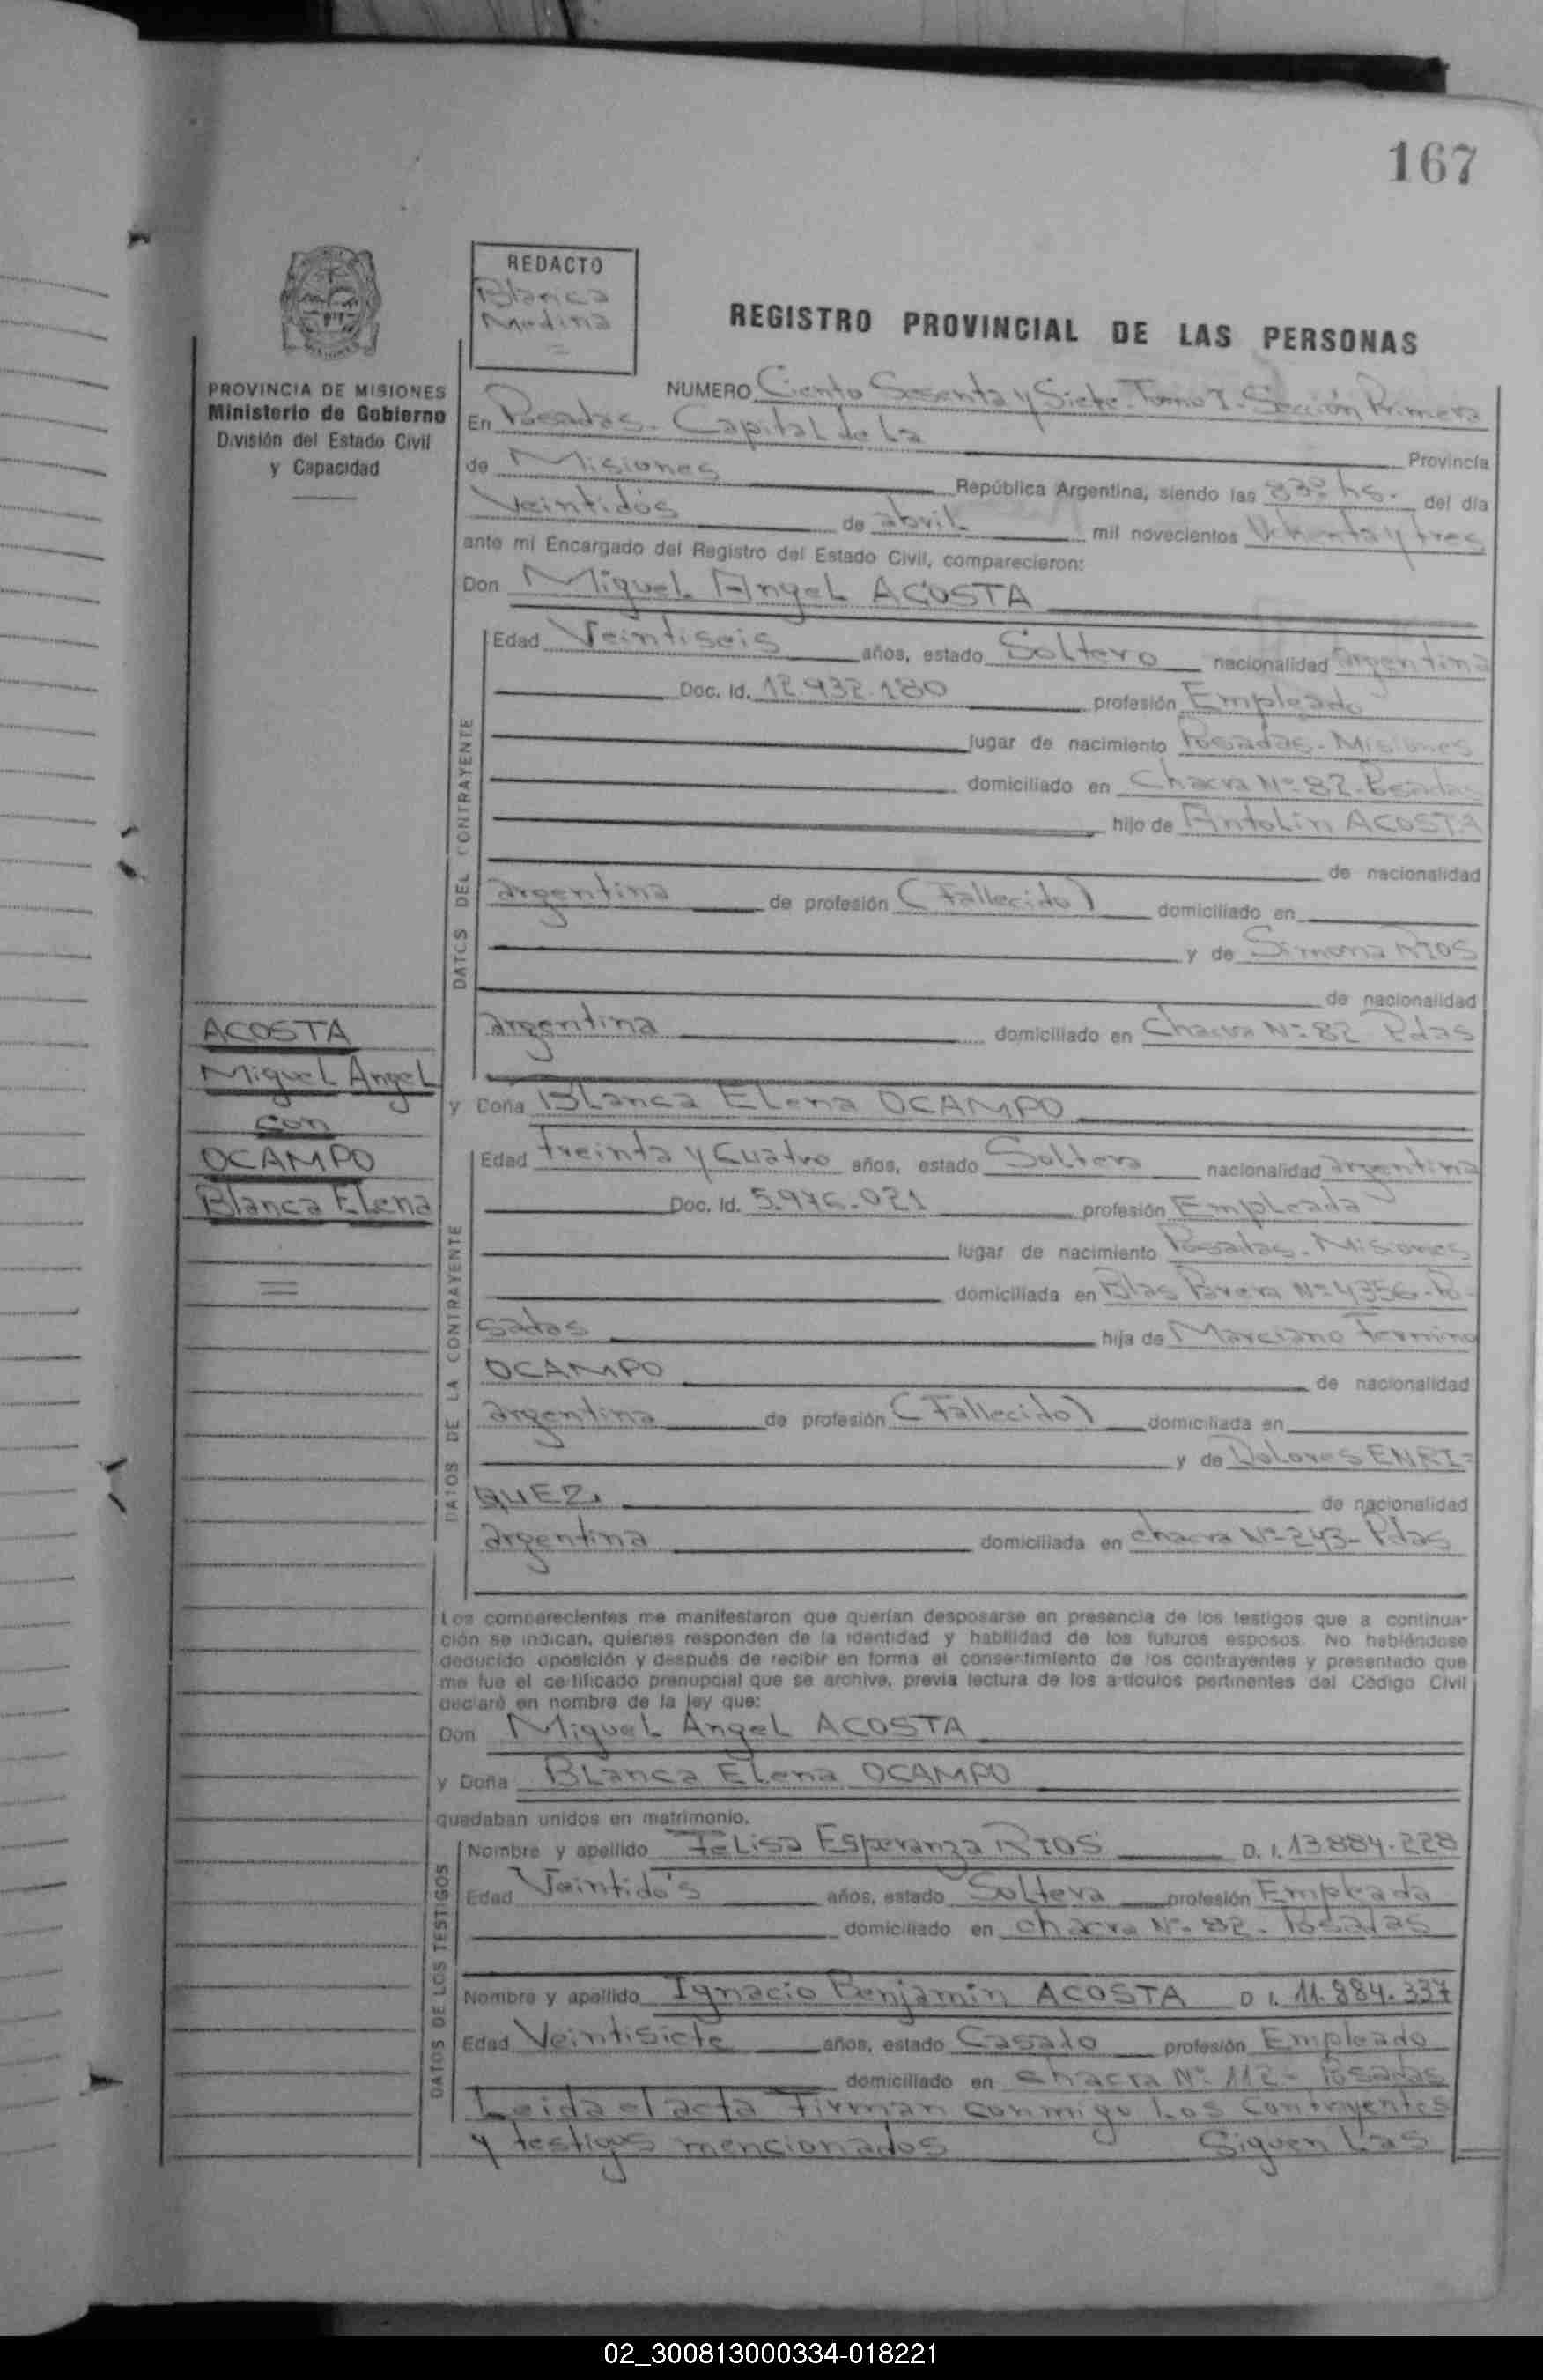 167
REDACTO
Blanca
Medina
REGISTRO PROVINCIAL DE LAS PERSONAS
PROVINCIA DE MISIONES
Ministerio de Gobierno
División del Estado Civil
y Capacidad
NUMERO Ciento Sesenta y Siete. Tomo I. Sección Primera
En Posadas. Capital de La
Provincia
de Misiones República Argentina, siendo las hs. del día
Veintidós de abril mil novecientos Ochenta y tres
ante mí Encargado del Registro del Estado Civil, comparecieron:
Don Miguel Angel ACOSTA
DATOS DEL CONTRAYENTE
Edad Veintiseis años, estado Soltero nacionalidad argentina
Doc. Id. 12.932.180 profesión Empleado
lugar de nacimiento Posadas. Misiones
domiciliado en Chacra Nº 82. Posadas
hijo de Antolin ACOSTA
de nacionalidad
argentina de profesión (Fallecido) domiciliado en
y de Simona RIOS
de nacionalidad
argentina domiciliado en Chacra Nº 82 Pdas
ACOSTA
Miguel Angel
con
OCAMPO
Blanca Elena
y Doña Blanca Elena OCAMPO
DATOS DE LA CONTRAYENTE
Edad treinta y cuatro años, estado Soltera nacionalidad argentina
Doc. Id. 5.976.021 profesión Empleada
lugar de nacimiento Posadas. Misiones
domiciliada en Blas Parera Nº 4356-Po-
sadas hija de Marciano Fermino
OCAMPO de nacionalidad
argentina de profesión (Fallecido) domiciliada en
y de Dolores ENRI-
QUEZ. de nacionalidad
argentina domiciliada en chacra Nº 243- Pdas
Los comparecientes me manifestaron que querían desposarse en presencia de los testigos que a continua-
ción se indican, quienes responden de la identidad y habilidad de los futuros esposos. No habiéndose
deducido oposición y después de recibir en forma el consentimiento de los contrayentes y presentado que
me fue el certificado prenupcial que se archiva, previa lectura de los artículos pertinentes del Código Civil
declaré en nombre de la ley que:
Don Miguel Angel ACOSTA
y Doña Blanca Elena OCAMPO
quedaban unidos en matrimonio.
DATOS DE LOS TESTIGOS
Nombre y apellido Felisa Esperanza RIOS D. I. 13.884.228
Edad Veintidós años, estado Soltera profesión Empleada
domiciliado en chacra Nº 82. Posadas
Nombre y apellido Ignacio Benjamin ACOSTA D. I. 11.884.337
Edad Veintisiete años, estado Casado profesión Empleado
domiciliado en chacra Nº 112- Posadas
Leida el acta Firman conmigo Los contrayentes
y testigos mencionados Siguen Las
02_300813000334-018221